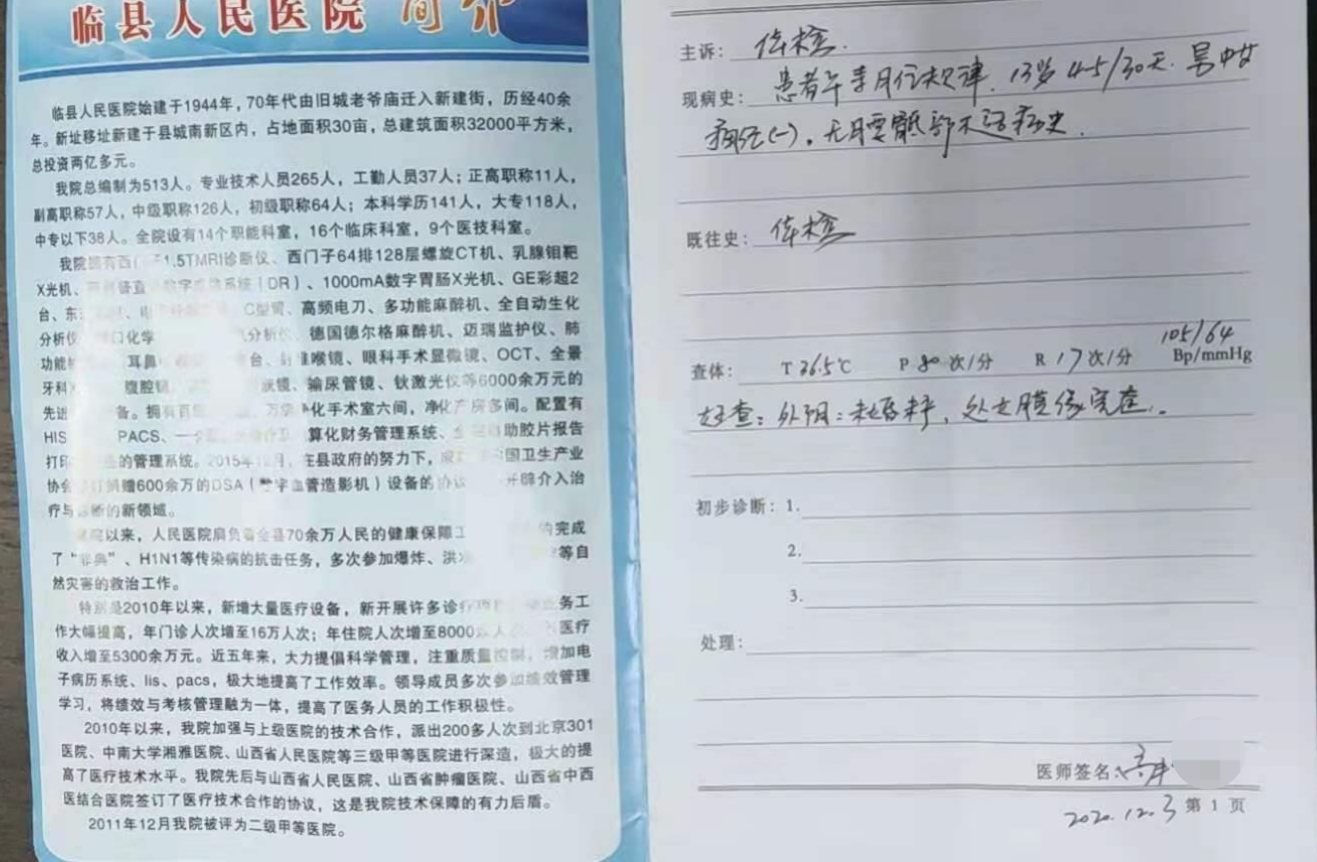 临县人民医院 简介
临县人民医院始建于1944年，70年代由旧城老爷庙迁入新建街，历经40余
年。新址移址新建于县城南新区内，占地面积30亩，总建筑面积32000平方米，
总投资两亿多元。
我院总编制为513人。专业技术人员265人，工勤人员37人；正高职称11人，
副高职称57人，中级职称126人，初级职称64人；本科学历141人，大专118人，
中专以下38人。全院设有14个职能科室，16个临床科室，9个医技科室。
我院拥有西门子1.5TMRI诊断仪、西门子64排128层螺旋CT机、乳腺钼靶
X光机、数字 系统（DR）、1000mA数字胃肠X光机、GE彩超2
台、东 C型臂、高频电刀、多功能麻醉机、全自动生化
分析仪 口化学 分析仪、德国德尔格麻醉机、迈瑞监护仪、肺
功能 耳鼻 台、 喉镜、眼科手术显微镜、OCT、全景
牙科 腹腔镜 镜、输尿管镜、钬激光仪等6000余万元的
先进 备。拥有百 万 净化手术室六间，净化产房多间。配置有
HIS PACS、一 算化财务管理系统、 自助胶片报告
打印 的管理系统。2015年12月，在县政府的努力下， 国卫生产业
协会 捐赠600余万的DSA（数字血管造影机）设备的协议 开辟介入治
疗与诊断的新领域。
以来，人民医院肩负着全县70余万人民的健康保障工 完成
了“非典”、H1N1等传染病的抗击任务，多次参加爆炸、洪 等自
然灾害的救治工作。
特别是2010年以来，新增大量医疗设备，新开展许多诊疗 务工
作大幅提高，年门诊人次增至16万人次；年住院人次增至8000 人 医疗
收入增至5300余万元。近五年来，大力提倡科学管理，注重质量控制，增加电
子病历系统、lis、pacs，极大地提高了工作效率。领导成员多次参加绩效管理
学习，将绩效与考核管理融为一体，提高了医务人员的工作积极性。
2010年以来，我院加强与上级医院的技术合作，派出200多人次到北京301
医院、中南大学湘雅医院、山西省人民医院等三级甲等医院进行深造，极大的提
高了医疗技术水平。我院先后与山西省人民医院、山西省肿瘤医院、山西省中西
医结合医院签订了医疗技术合作的协议，这是我院技术保障的有力后盾。
2011年12月我院被评为二级甲等医院。
主诉：体检.
现病史：患者 月经规律. 13岁 4-5/30天. 量中
痛经(-)，无腰骶部不适病史.
既往史：体检
查体： T 36.5℃ P 80 次/分 R 17 次/分 105/64 Bp/mmHg
妇查：外阴：未婚 , 处女膜缘完整.
初步诊断：1.
2.
3.
处理：
医师签名：
2020.12.3 第 1 页